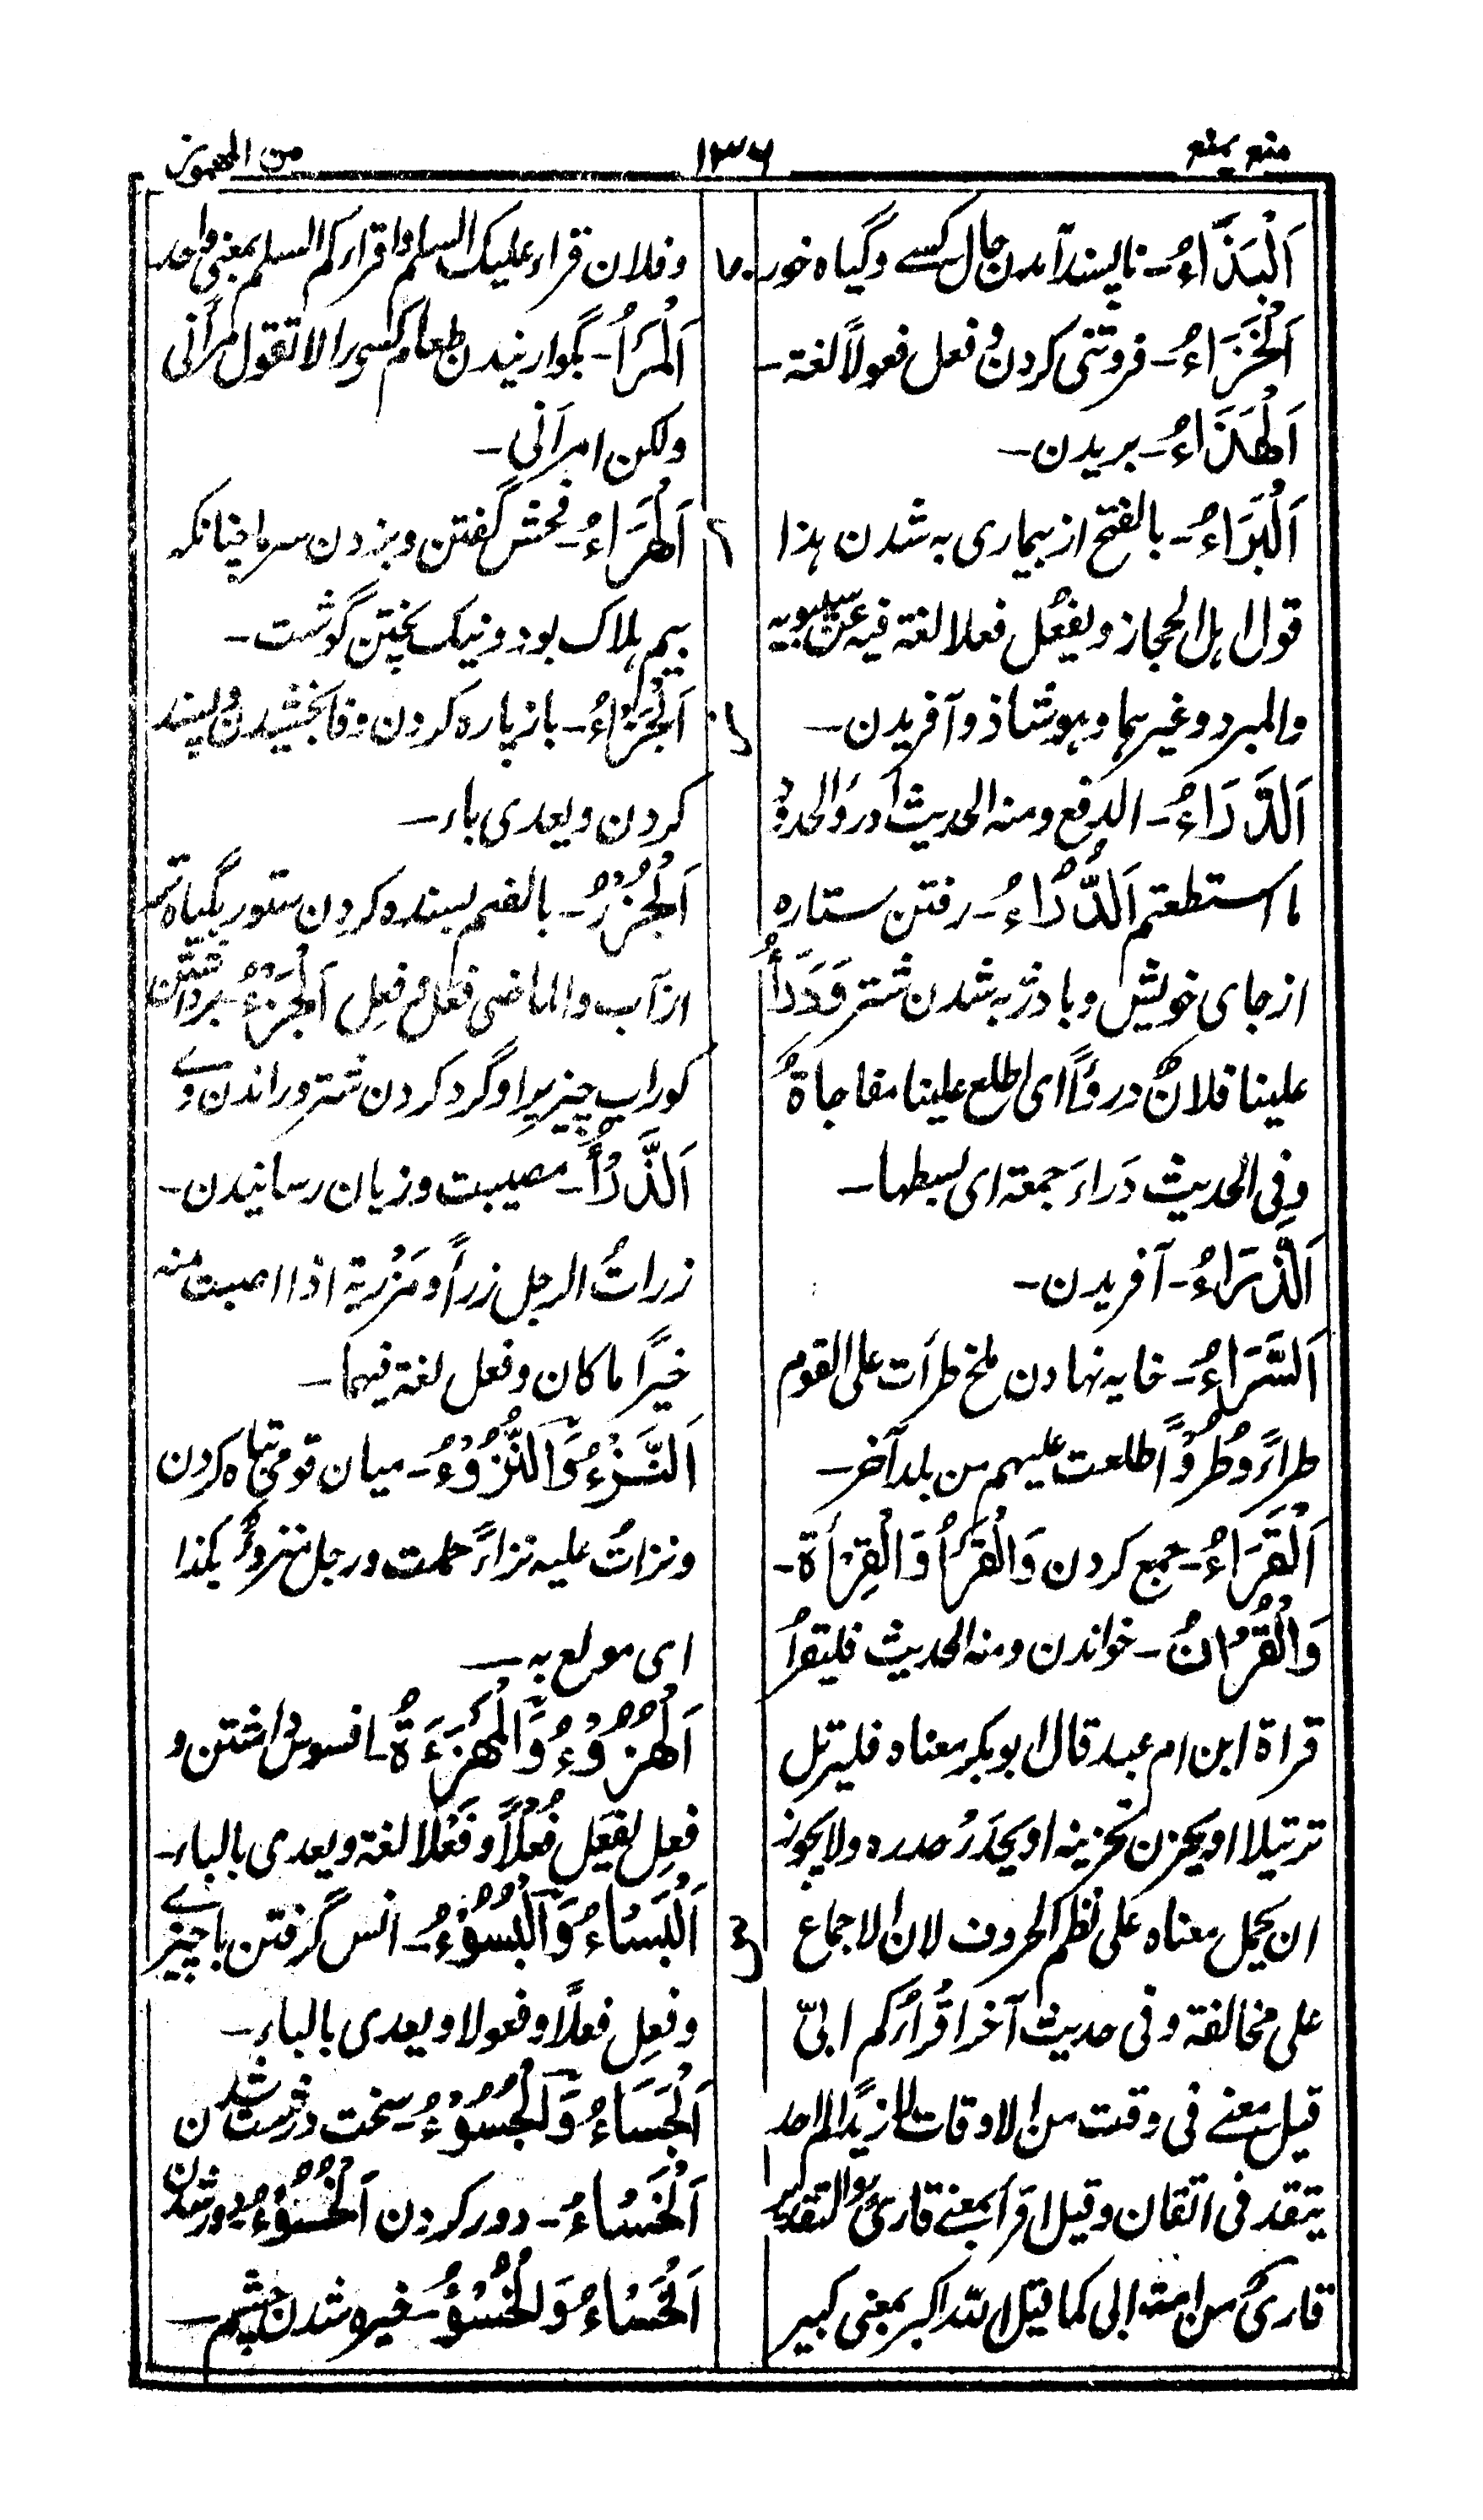 منع یمنع
۱۳۶
من المهموز
اَلْبَذَاءُ۔ ناپسند آمدن حال کسے و گیاه خورد
اَلْخَزَاءُ۔ فروتنی کردن و فعل فعولاً لغة۔
اَلْهَذَاءُ۔ بریدن۔
اَلْبَرَاءُ۔ بالفتح از بیماری به شدن هذا
قول اہل الحجاز و یفعُل فعلا لغة فیه عن سیبویه
والمبرد و غیرہما و ہو شاذ و آفریدن۔
اَلدَّرَاءُ۔ الدفع و منه الحدیث ادرؤا الحدود
ما استطعتم اَلدُّرُاءُ۔ رفتن ستاره
از جای خویش و با دژ به شدن شتر وَدَرَأَ
علینا فلانٌ دروءًا ای اطلع علینا مفاجاةً
وفی الحدیث دَراءَ جمعة ای بسطها۔
اَلذَّرَاءُ۔ آفریدن۔
اَلسَّرَاءُ۔ خایه نهادن ملخ طرأت علی القوم
طراءً وطُروًّا طلعت علیهم من بلد آخر۔
اَلْقَرَاءُ۔ جمع کردن وَالْقَرْأُ وَالْقِرْأَة۔
وَالْقُرْانُ۔ خواندن و منه الحدیث فلیقرأ
قراة ابن ام عبد قال ابو بکر معناه فلیرتل
ترتیلا او یحزن تحزینه او یحدَرُ حدره ولا یجوز
ان یحمل معناه علی نظم الحروف لان الاجماع
علی مخالفة و فی حدیث آخر اقرأکم ابیّ
قیل معنے فی وقت من الاوقات لان زیدًا لم احد
یتقد فی اتقان و قیل اقرأ بمعنے قارئ والتقدیر
قارئ من امة ابی کما قیل الله اکبر بمعنی کبیر
و فلان قراء علیک السلم و اقرأکم السلم بمعنی واحد
اَلْمَرَأُ۔ گوارنیدن طعام کسی را لا تقول مرأنی
ولکن امرأنی۔
اَلْهَرَاءُ۔ فحش گفتن و بزدن سرما چنانکه
بیم هلاک بود و نیک پختن گوشت۔
اَلْجَزَاءُ۔ باز پاره کردن و فا بخشیدن و پسند
کردن و یعدی بباء۔
اَلْجُزْءُ۔ بالضم بسنده کردن ستور بگیاه تر
از آب والماضی فعل و فعِل اَلْجَزْءُ۔ برداشتن
کوراب چیزیرا و گرد کردن شتر و راندن وے
اَلذَّرْأُ۔ مصیبت و زیان رسانیدن۔
زراتُ الرجل زرأً و مَزرِیة اذا اصبت منه
خیرًا ما کان و فعل لغة فیهما۔
اَلنَّزْءُ وَالنُّزُوْءُ۔ میان قومی تباه کردن
و نزاتُ علیه نزاءً حملت و رجل منزوءٌ بکذا
ای مولع به۔
اَلْهُزُوْءُ وَالْمَهْزَءَةُ۔ افسوس داشتن و
فعِل یفعَل فُعْلاً و فَعْلا لغة و یعدی بالباء۔
اَلْبَسَاءُ وَالْبُسُوْءُ۔ انس گرفتن با چیزے
و فعِل فعلاً و فعولا و یعدی بالباء۔
اَلْجَسَاءُ وَالْجُسُوْءُ۔ سخت و درشت شدن
اَلْخَسَاءُ۔ دور کردن اَلْخُسُوْءُ دور شدن
اَلْخَسَاءُ وَالْخُسُوْءُ۔ خیره شدن چشم۔